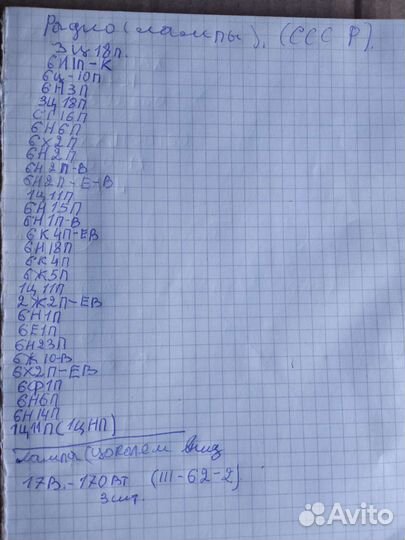 Радио(лампы). (СССР).
3Ц18П.
6И1П-К
6Ц-10П
6Н3П
3Ц18П
СГ16П
6Н6П
6Х2П
6Н2П
6Н2П-В
6Н2П-Е-В
1Ц11П
6Н15П
6Н1П-В
6К4П-ЕВ
6Н18П
6К4П
6Ж5П
1Ц11П
2Ж27П-ЕВ
6Н1П
6Е1П
6Н23П
6Ж10-В
6Х2П-ЕВ
6Ф1П
6Н6П
6Н14П
1Ц11П(1ЦНП)
Лампа (цоколем вниз
17В.-170Вт (III-62-2)
3шт.
Avito